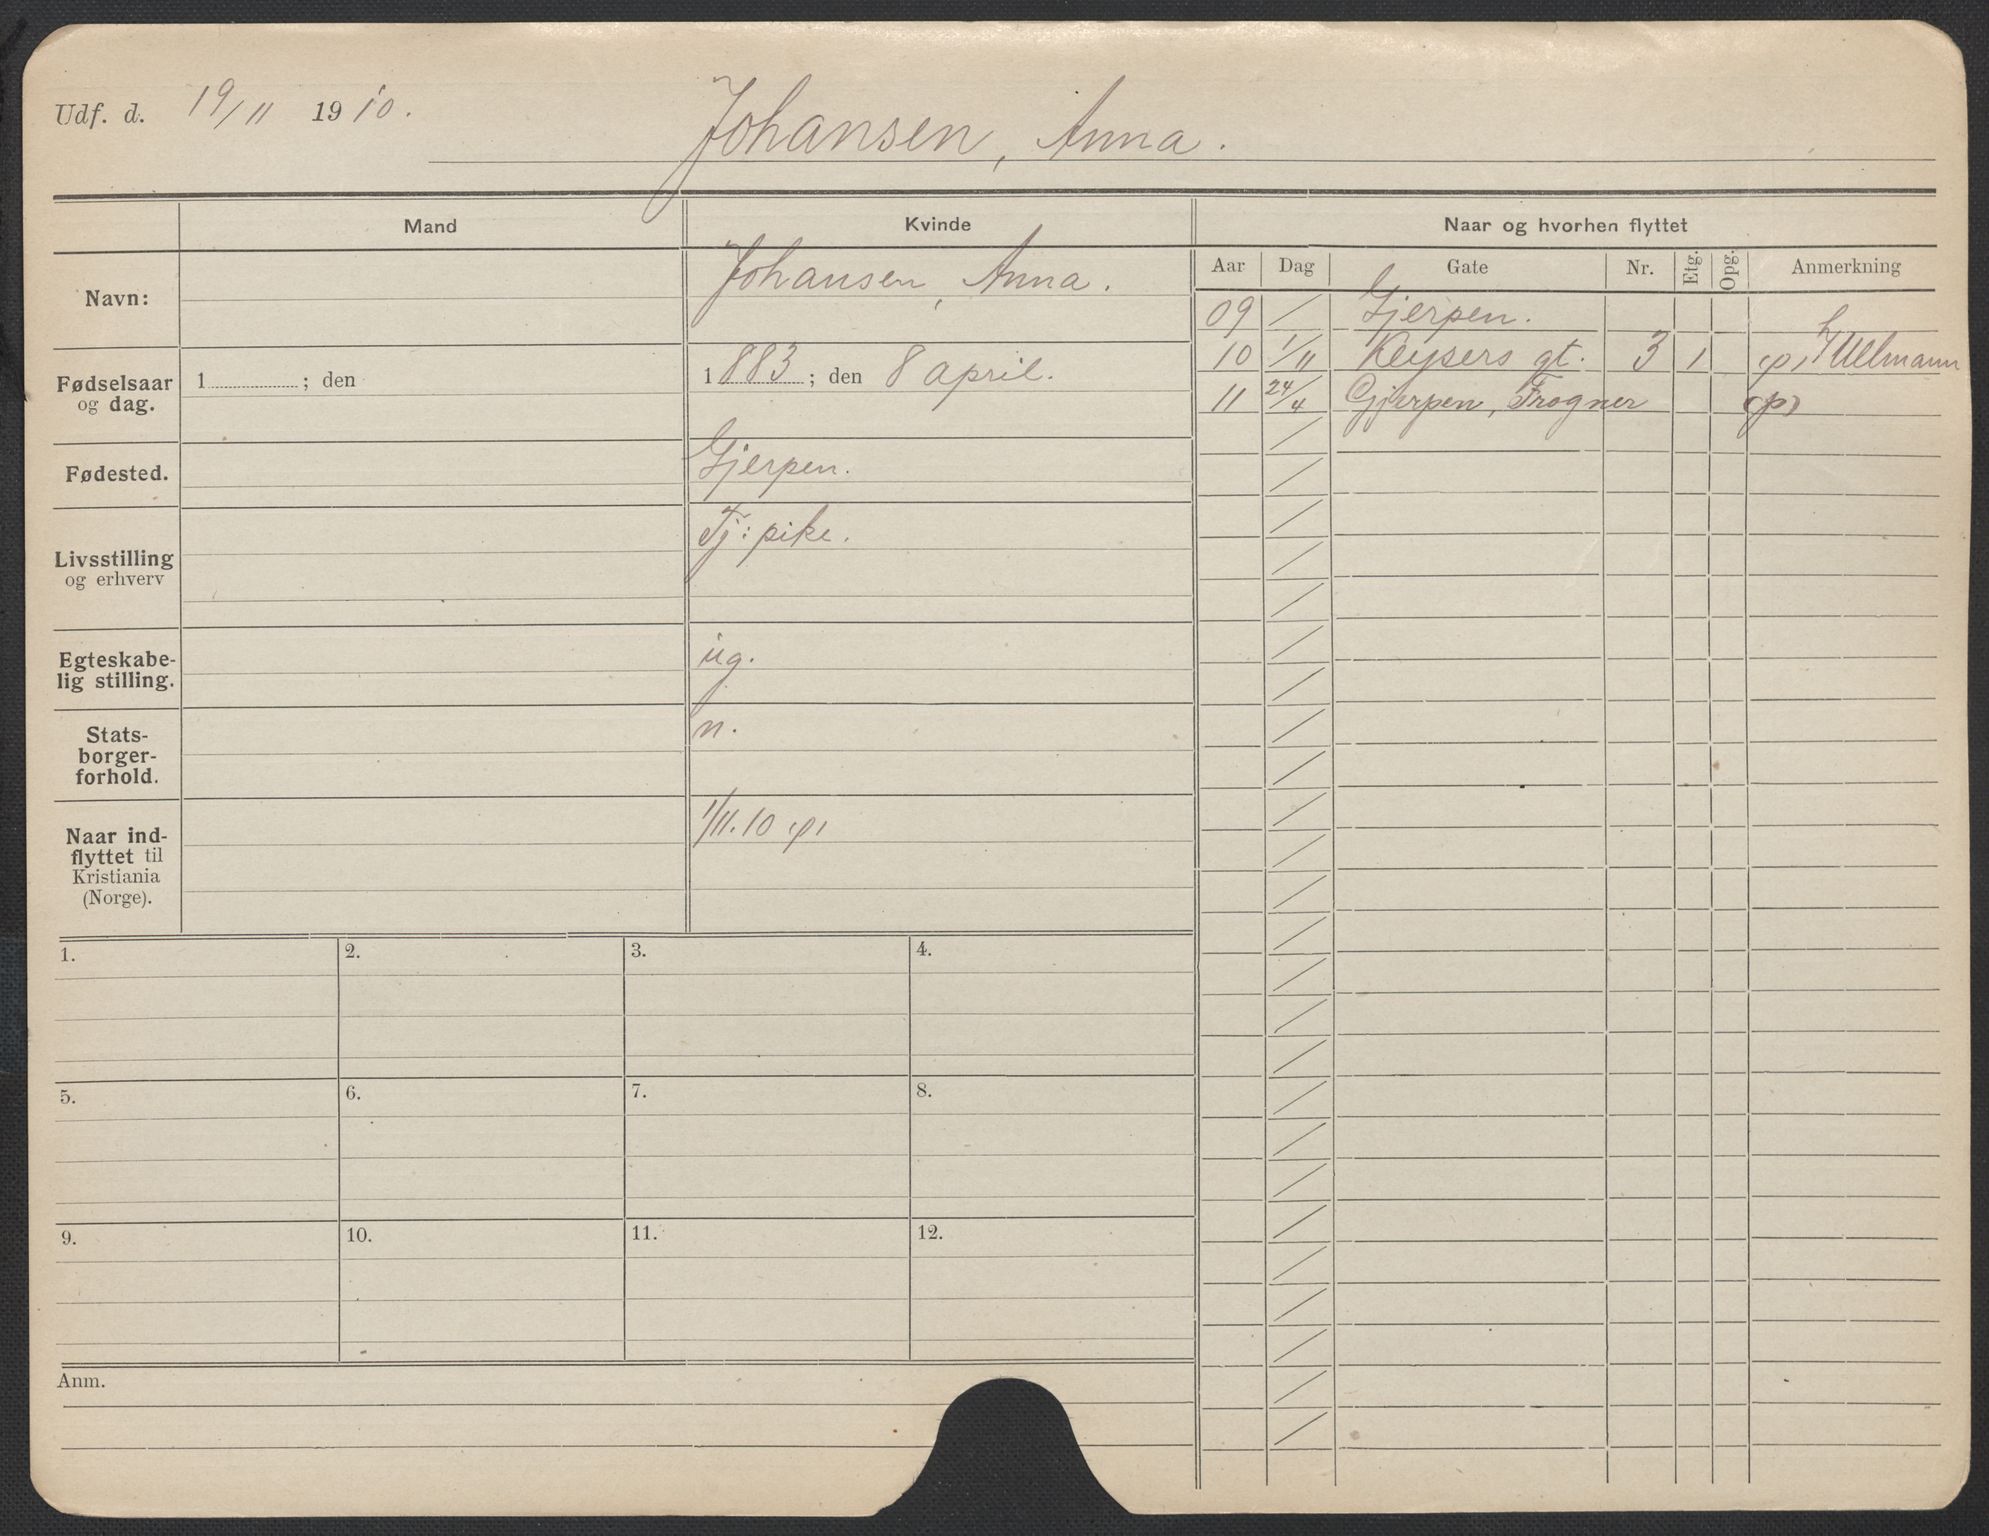 Udf. d. 19/11 1910.
Johansen, Anna.
Mand
Kvinde
Naar og hvorhen flyttet
Aar Dag Gate Nr. Etg. Opg. Anmerkning
Navn:
Johansen, Anna.
09 / Gjerpen.
10 1/11 Keysers gt. 3 1 Ullmann
11 24/4 Gjerpen, Frogner (p)
Fødselsaar
og dag.
1 ; den
1883; den 8 april.
Fødested.
Gjerpen.
Livsstilling
og erhverv
Tj: pike.
Egteskabe-
lig stilling.
ug.
Stats-
borger-
forhold.
n.
Naar ind-
flyttet til
Kristiania
(Norge).
1/11.10
1. 2. 3. 4.
5. 6. 7. 8.
9. 10. 11. 12.
Anm.